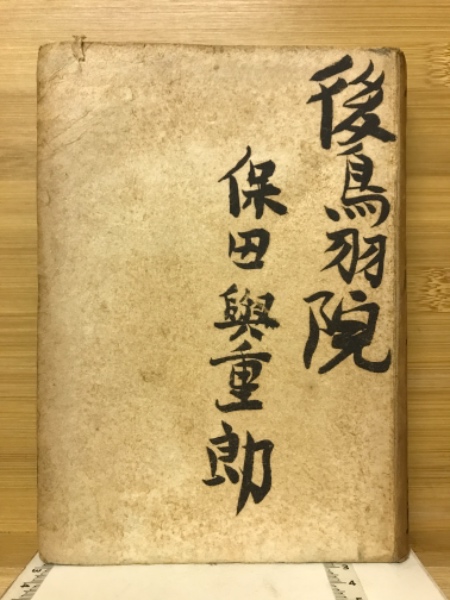 後鳥羽院
保田與重郎